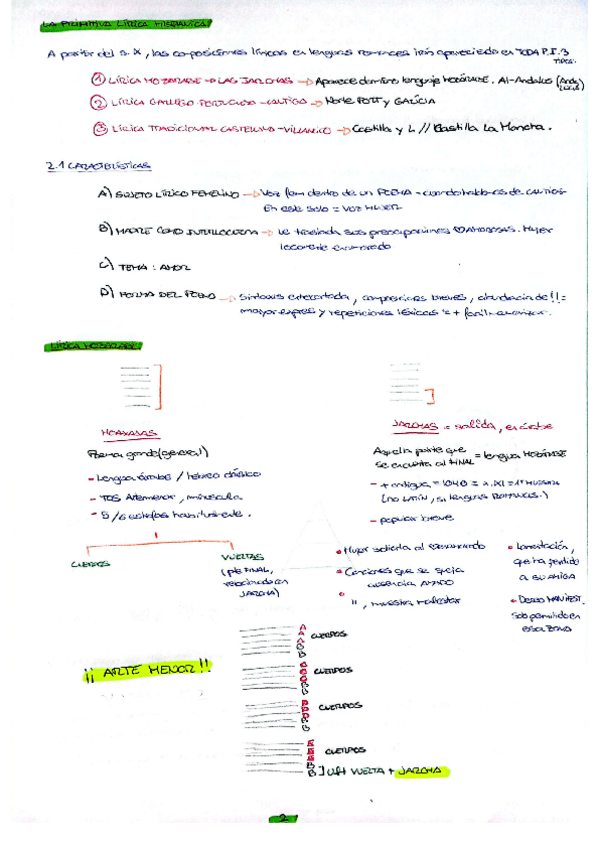 LA PRIMITIVA LÍRICA HISPÁNICA
A partir del s. X, las composiciones líricas en lenguas romances irán apareciendo en TODA P.I. 3
TIPOS
① LÍRICA MOZÁRABE → LAS JARCHAS → Aparece dominio lenguaje MOZÁRABE. Al-Andalus (Anda
LUCÍA)
② LÍRICA GALLEGO-PORTUGUESA → Norte PORT y GALICIA
③ LÍRICA TRADICIONAL CASTELLANA - VILLANCICO → Castilla y L // Castilla La Mancha.
2.1 CARACTERÍSTICAS
A) SUJETO LÍRICO FEMENINO → Voz fem dentro de un POEMA - cuando hablamos de
En este solo = VOZ MUJER
B) MADRE COMO INTERLOCUTORA → Le traslada sus preocupaciones AMOROSAS. Mujer
C) TEMA: AMOR
D) FORMA DEL POEMA → Sintaxis entrecortada, composiciones breves, abundancia de !! =
mayor expres y repeticiones léxicas = + fácil memorizar.
LÍRICA MOZÁRABE
MOAXAJAS
Poema grande (general)
- Lengua árabe / hebreo clásico
- TDS Arte menor,
- 5 / 6 estrofas habitualmente.
JARCHAS = salida, en árabe
Aquella parte que
se encuentra al FINAL = lengua MOZÁRABE
- + antigua = 1040 = s. XI = 1ª muestra
(no LATÍN, sí lenguas ROMANCES.)
- popular breve
CUERPOS
VUELTAS
(pte FINAL,
relacionada con
JARCHA)
• Mujer solicita al
• Canciones que se queja
ausencia AMADO
• ", muestra malestar
• Lamentación,
que ha perdido
a su AMIGA
• Deseo MANIFEST.
¡¡ ARTE MENOR !!
A
A
A
B
B
CUERPOS
C
C
C
B
B
CUERPOS
D
D
D
B
B
CUERPOS
E
E
E
B
B
CUERPOS
] VUELTA + JARCHA
2